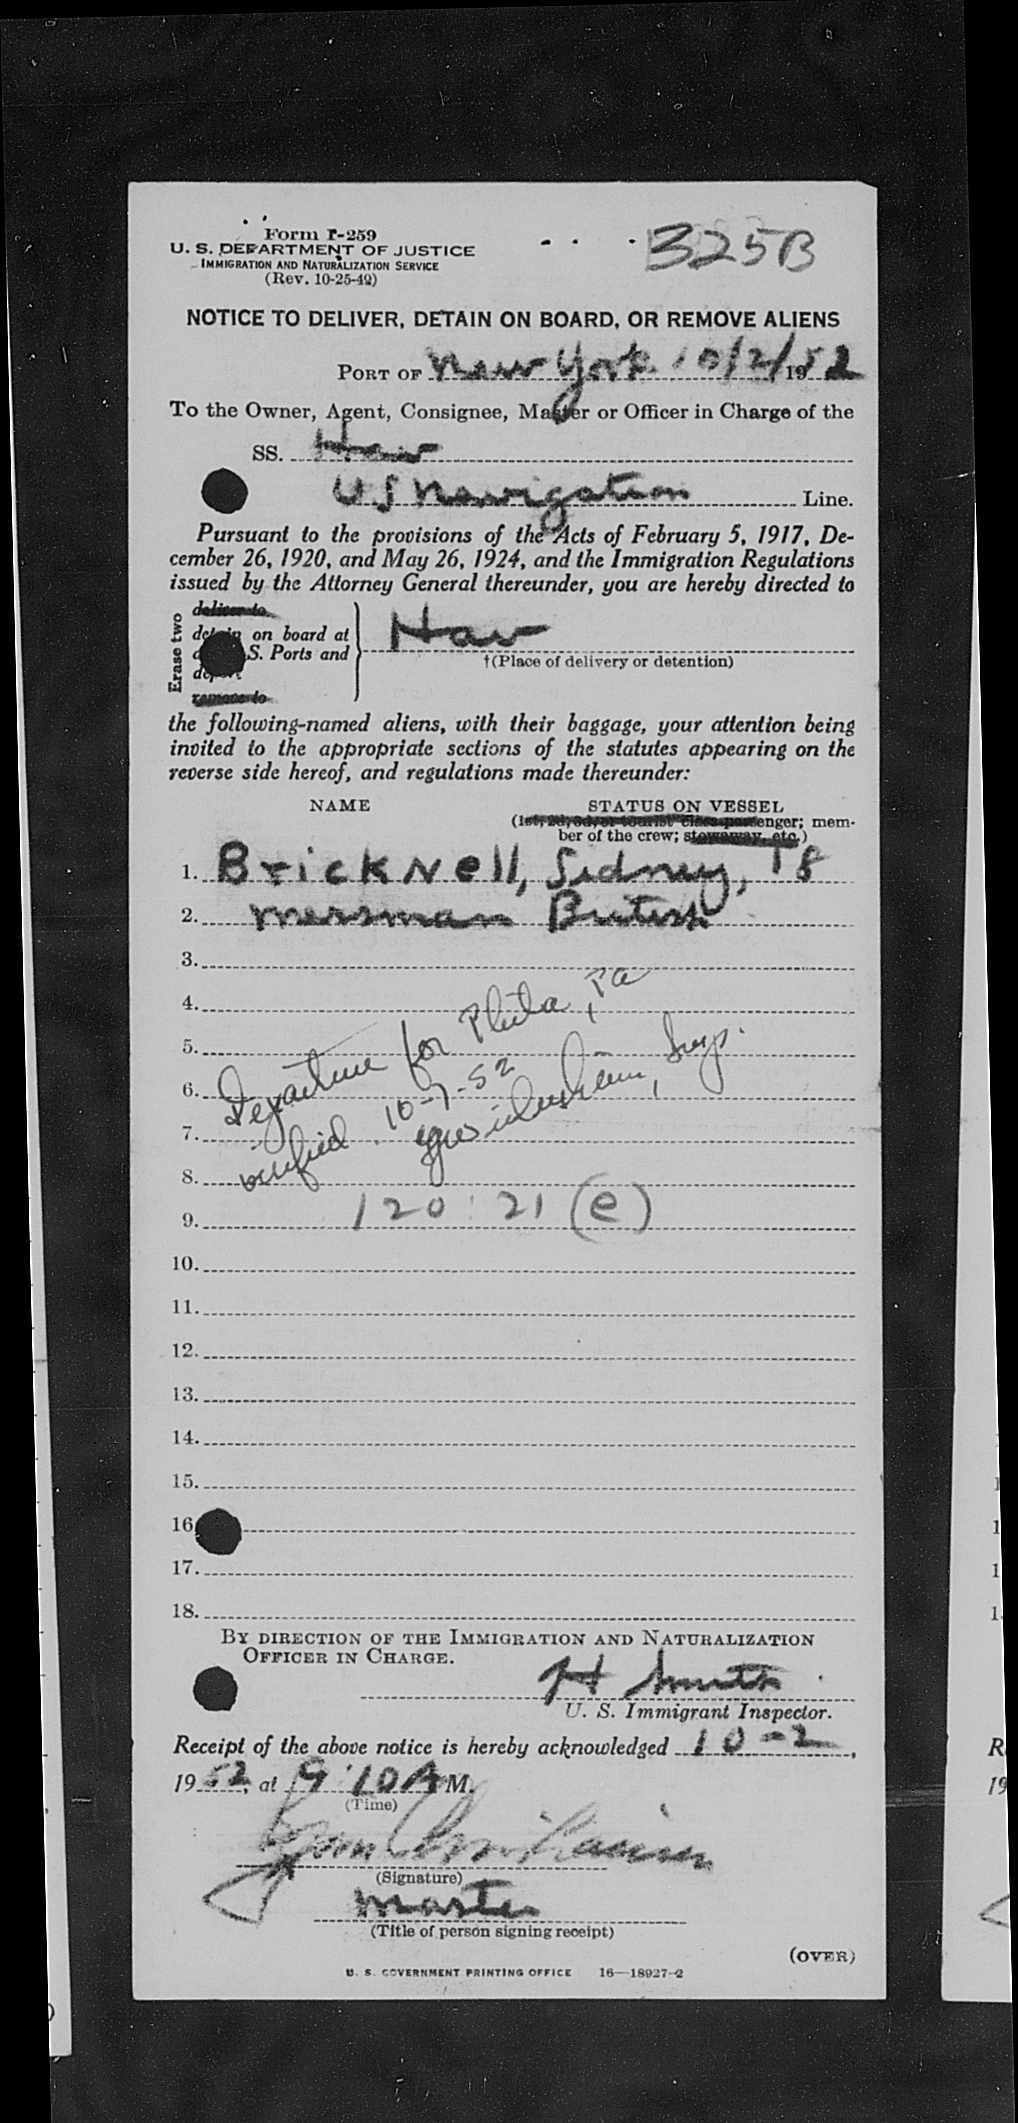 Form I-259
U. S. DEPARTMENT OF JUSTICE
IMMIGRATION AND NATURALIZATION SERVICE
(Rev. 10-25-49)
325B
NOTICE TO DELIVER, DETAIN ON BOARD, OR REMOVE ALIENS
PORT OF New York 10/2/ 1952
To the Owner, Agent, Consignee, Master or Officer in Charge of the
SS. Hav
U S Navigation Line.
Pursuant to the provisions of the Acts of February 5, 1917, De-
cember 26, 1920, and May 26, 1924, and the Immigration Regulations
issued by the Attorney General thereunder, you are hereby directed to
Erase two
deliver to
detain on board at
S. Ports and
remove to
Hav
†(Place of delivery or detention)
the following-named aliens, with their baggage, your attention being
invited to the appropriate sections of the statutes appearing on the
reverse side hereof, and regulations made thereunder:
NAME STATUS ON VESSEL
(1st, 2d, 3d, or tourist class passenger; mem-
ber of the crew; stowaway, etc.)
1. Bricknell, Sidney, 18
2. messman British
3.
4.
5.
6.
7.
8.
Departure for Phila, Pa
verified 10-7-52
Insp.
9. 120:21 (e)
10.
11.
12.
13.
14.
15.
16
17.
18.
BY DIRECTION OF THE IMMIGRATION AND NATURALIZATION
OFFICER IN CHARGE.
H Smith
U. S. Immigrant Inspector.
Receipt of the above notice is hereby acknowledged 10-2,
1952, at 9:10 A M.
(Time)
(Signature)
Master
(Title of person signing receipt)
(OVER)
U. S. GOVERNMENT PRINTING OFFICE 16—18927-2